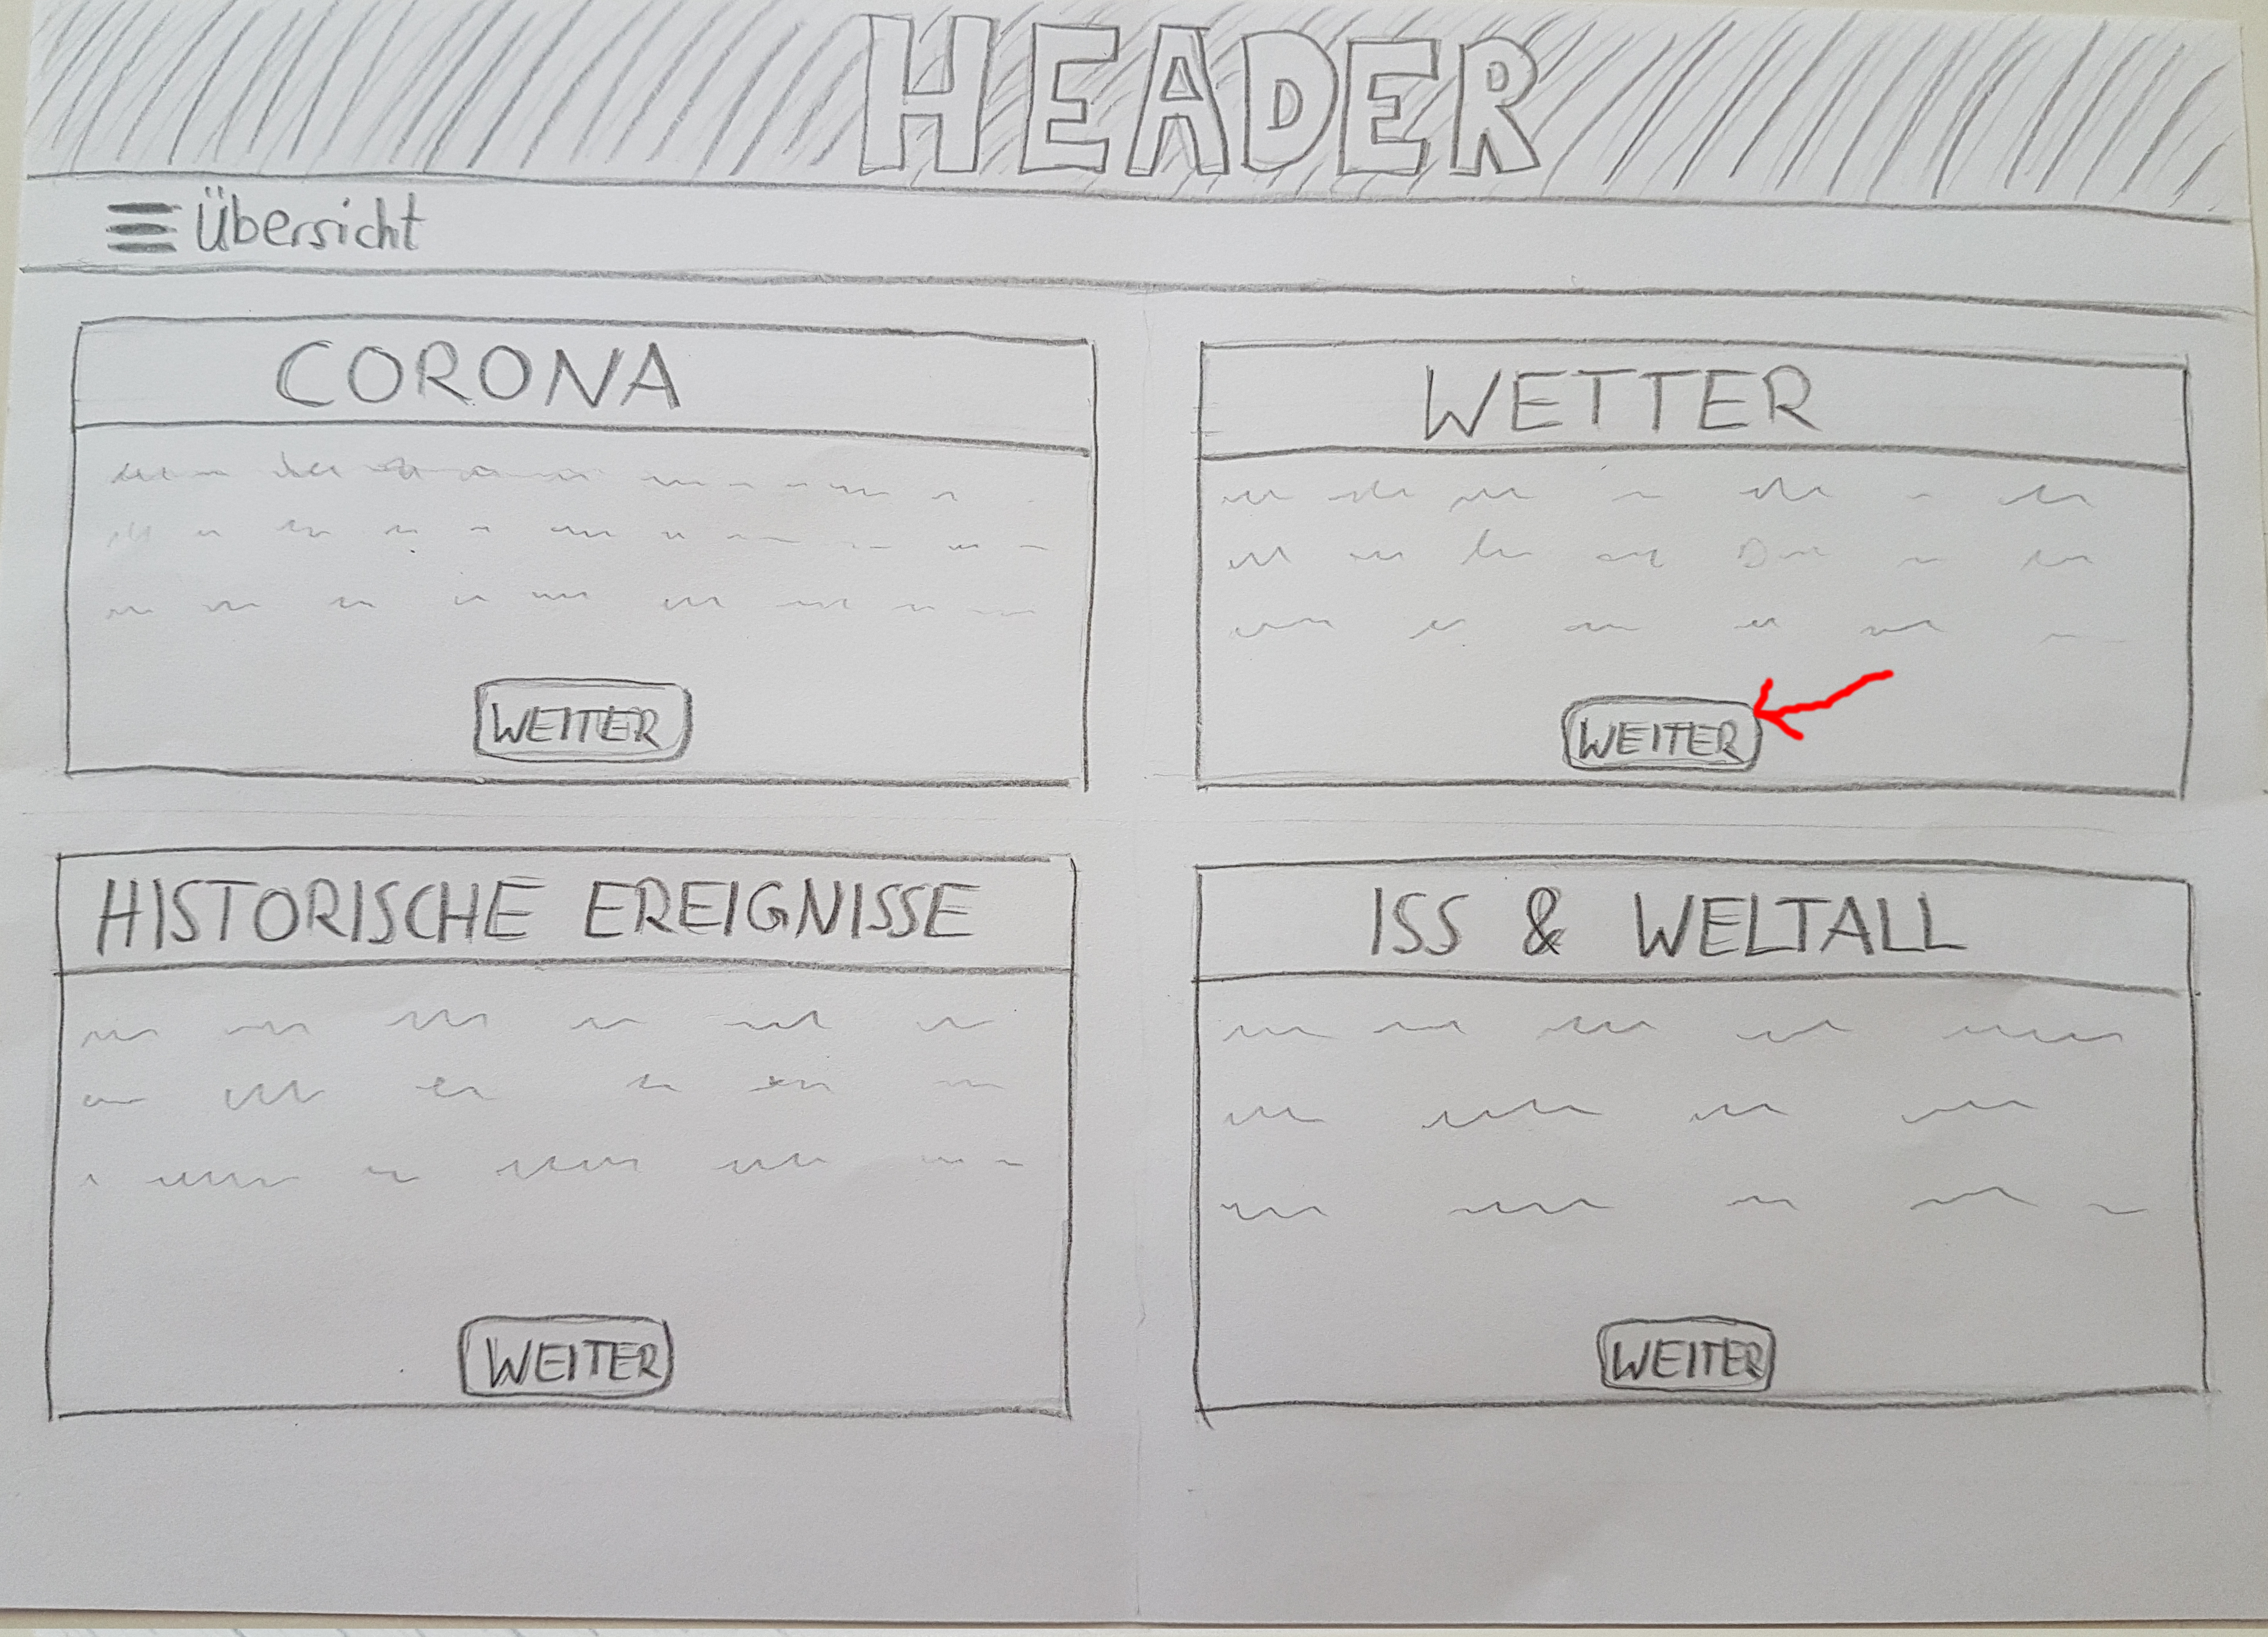 HEADER
Übersicht
CORONA
WEITER
WETTER
WEITER
HISTORISCHE EREIGNISSE
WEITER
ISS & WELTALL
WEITER